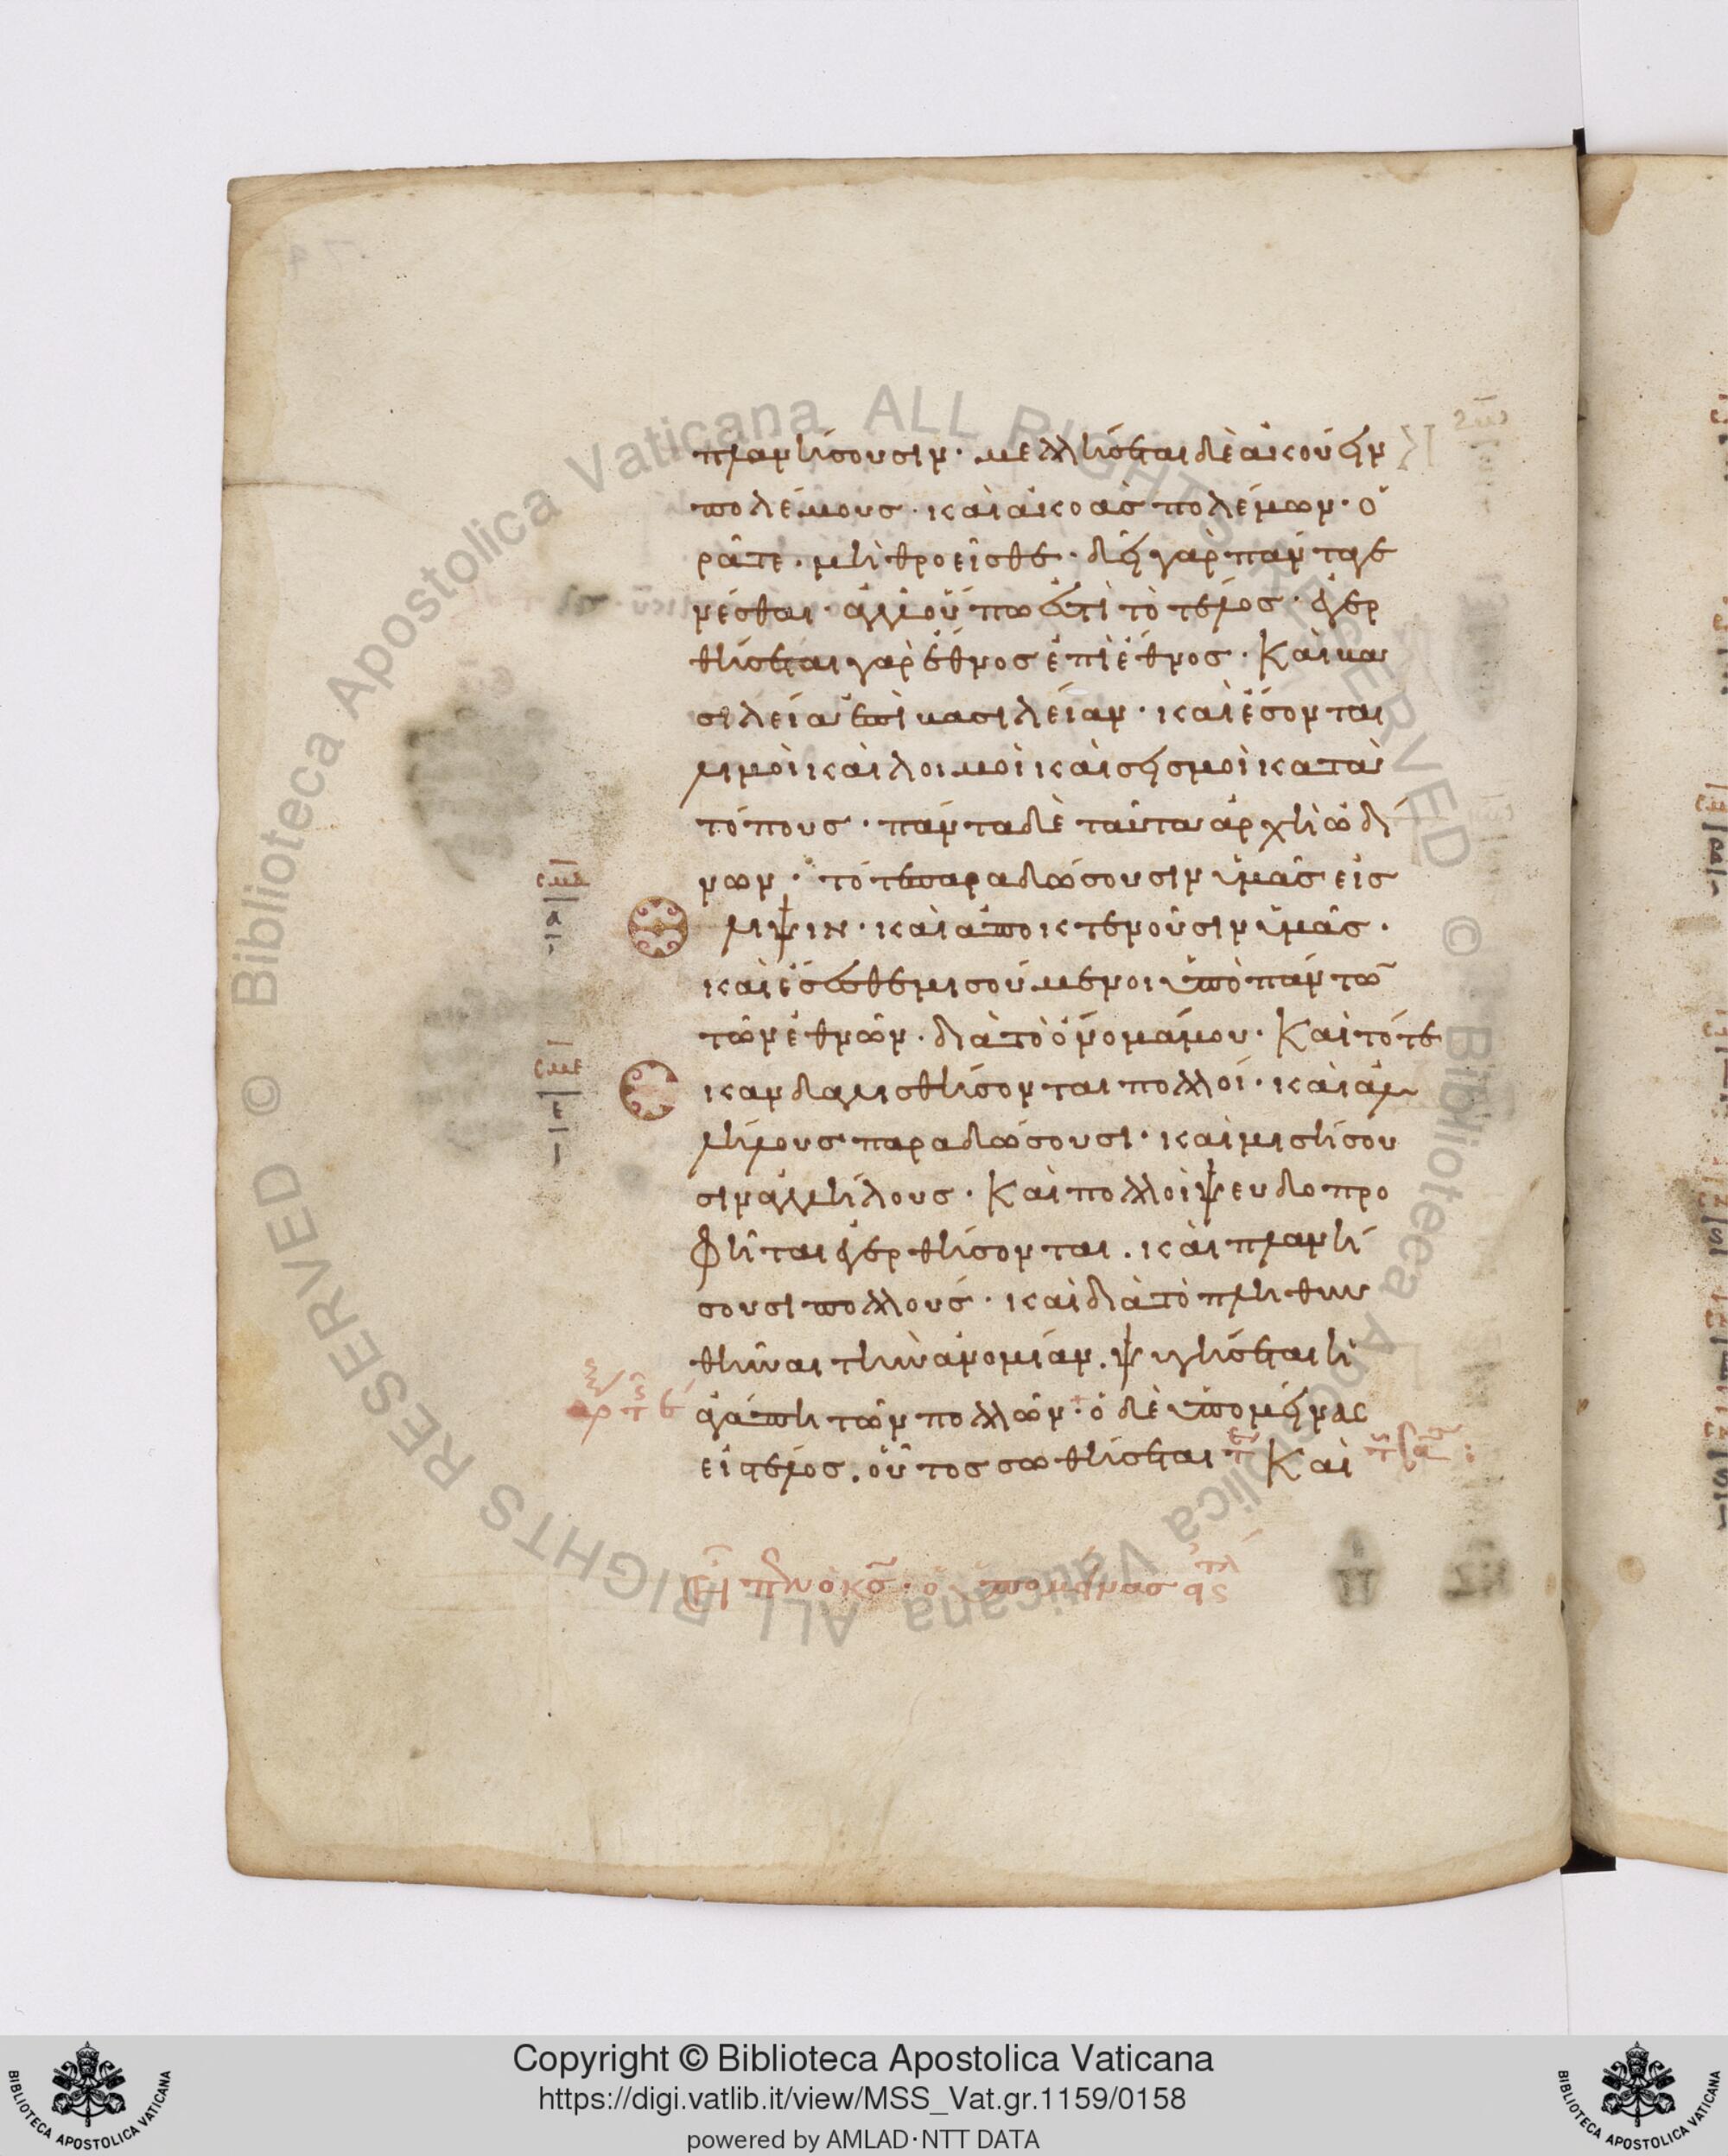 πλανήσουσιν· μελλήσεται δὲ ἀκούειν
πολέμους· καὶ ἀκοὰς πολέμων· ὁ
ρᾶτε. μὴ θροεῖσθε· δεῖ γὰρ πάντα γε
νέσθαι· ἀλλ οὔπω ἐστὶ τὸ τέλος· ἐγερ
θήσεται γὰρ ἔθνος ἐπὶ ἔθνος· Καὶ βα
σιλεία ἐπὶ βασιλείαν· καὶ ἔσονται
λιμοὶ καὶ λοιμοὶ καὶ σεισμοὶ κατὰ
τόπους· πάντα δὲ ταῦτα ἀρχὴ ὠδί
νων· τότε παραδώσουσιν ὑμᾶς εἰς
θλίψιν· καὶ ἀποκτενοῦσιν ὑμᾶς·
καὶ ἔσεσθε μισούμενοι ὑπὸ πάντω̅
τῶν ἐθνῶν· διὰ τὸ ὄνομά μου· Καὶ τότε
σκανδαλισθήσονται πολλοί· καὶ ἀλ
λήλους παραδώσουσι· καὶ μισήσου
σιν ἀλλήλους· Καὶ πολλοὶ ψευδοπρο
φῆται ἐγερθήσονται. καὶ πλανή
σουσι πολλούς· καὶ διὰ τὸ πληθυν
θῆναι τὴν ἀνομίαν. ψυγήσεται ἡ
ἀγάπη τῶν πολλῶν· ὁ δὲ ὑπομείνας
εἰς τέλος. οὗτος σωθήσεται Καὶ
ὁ ὑπομείνας
© Biblioteca Apostolica Vaticana ALL RIGHTS RESERVED
© Biblioteca Apostolica Vaticana ALL RIGHTS RESERVED
Copyright © Biblioteca Apostolica Vaticana
https://digi.vatlib.it/view/MSS_Vat.gr.1159/0158
powered by AMLAD·NTT DATA
BIBLIOTECA APOSTOLICA VATICANA
BIBLIOTECA APOSTOLICA VATICANA